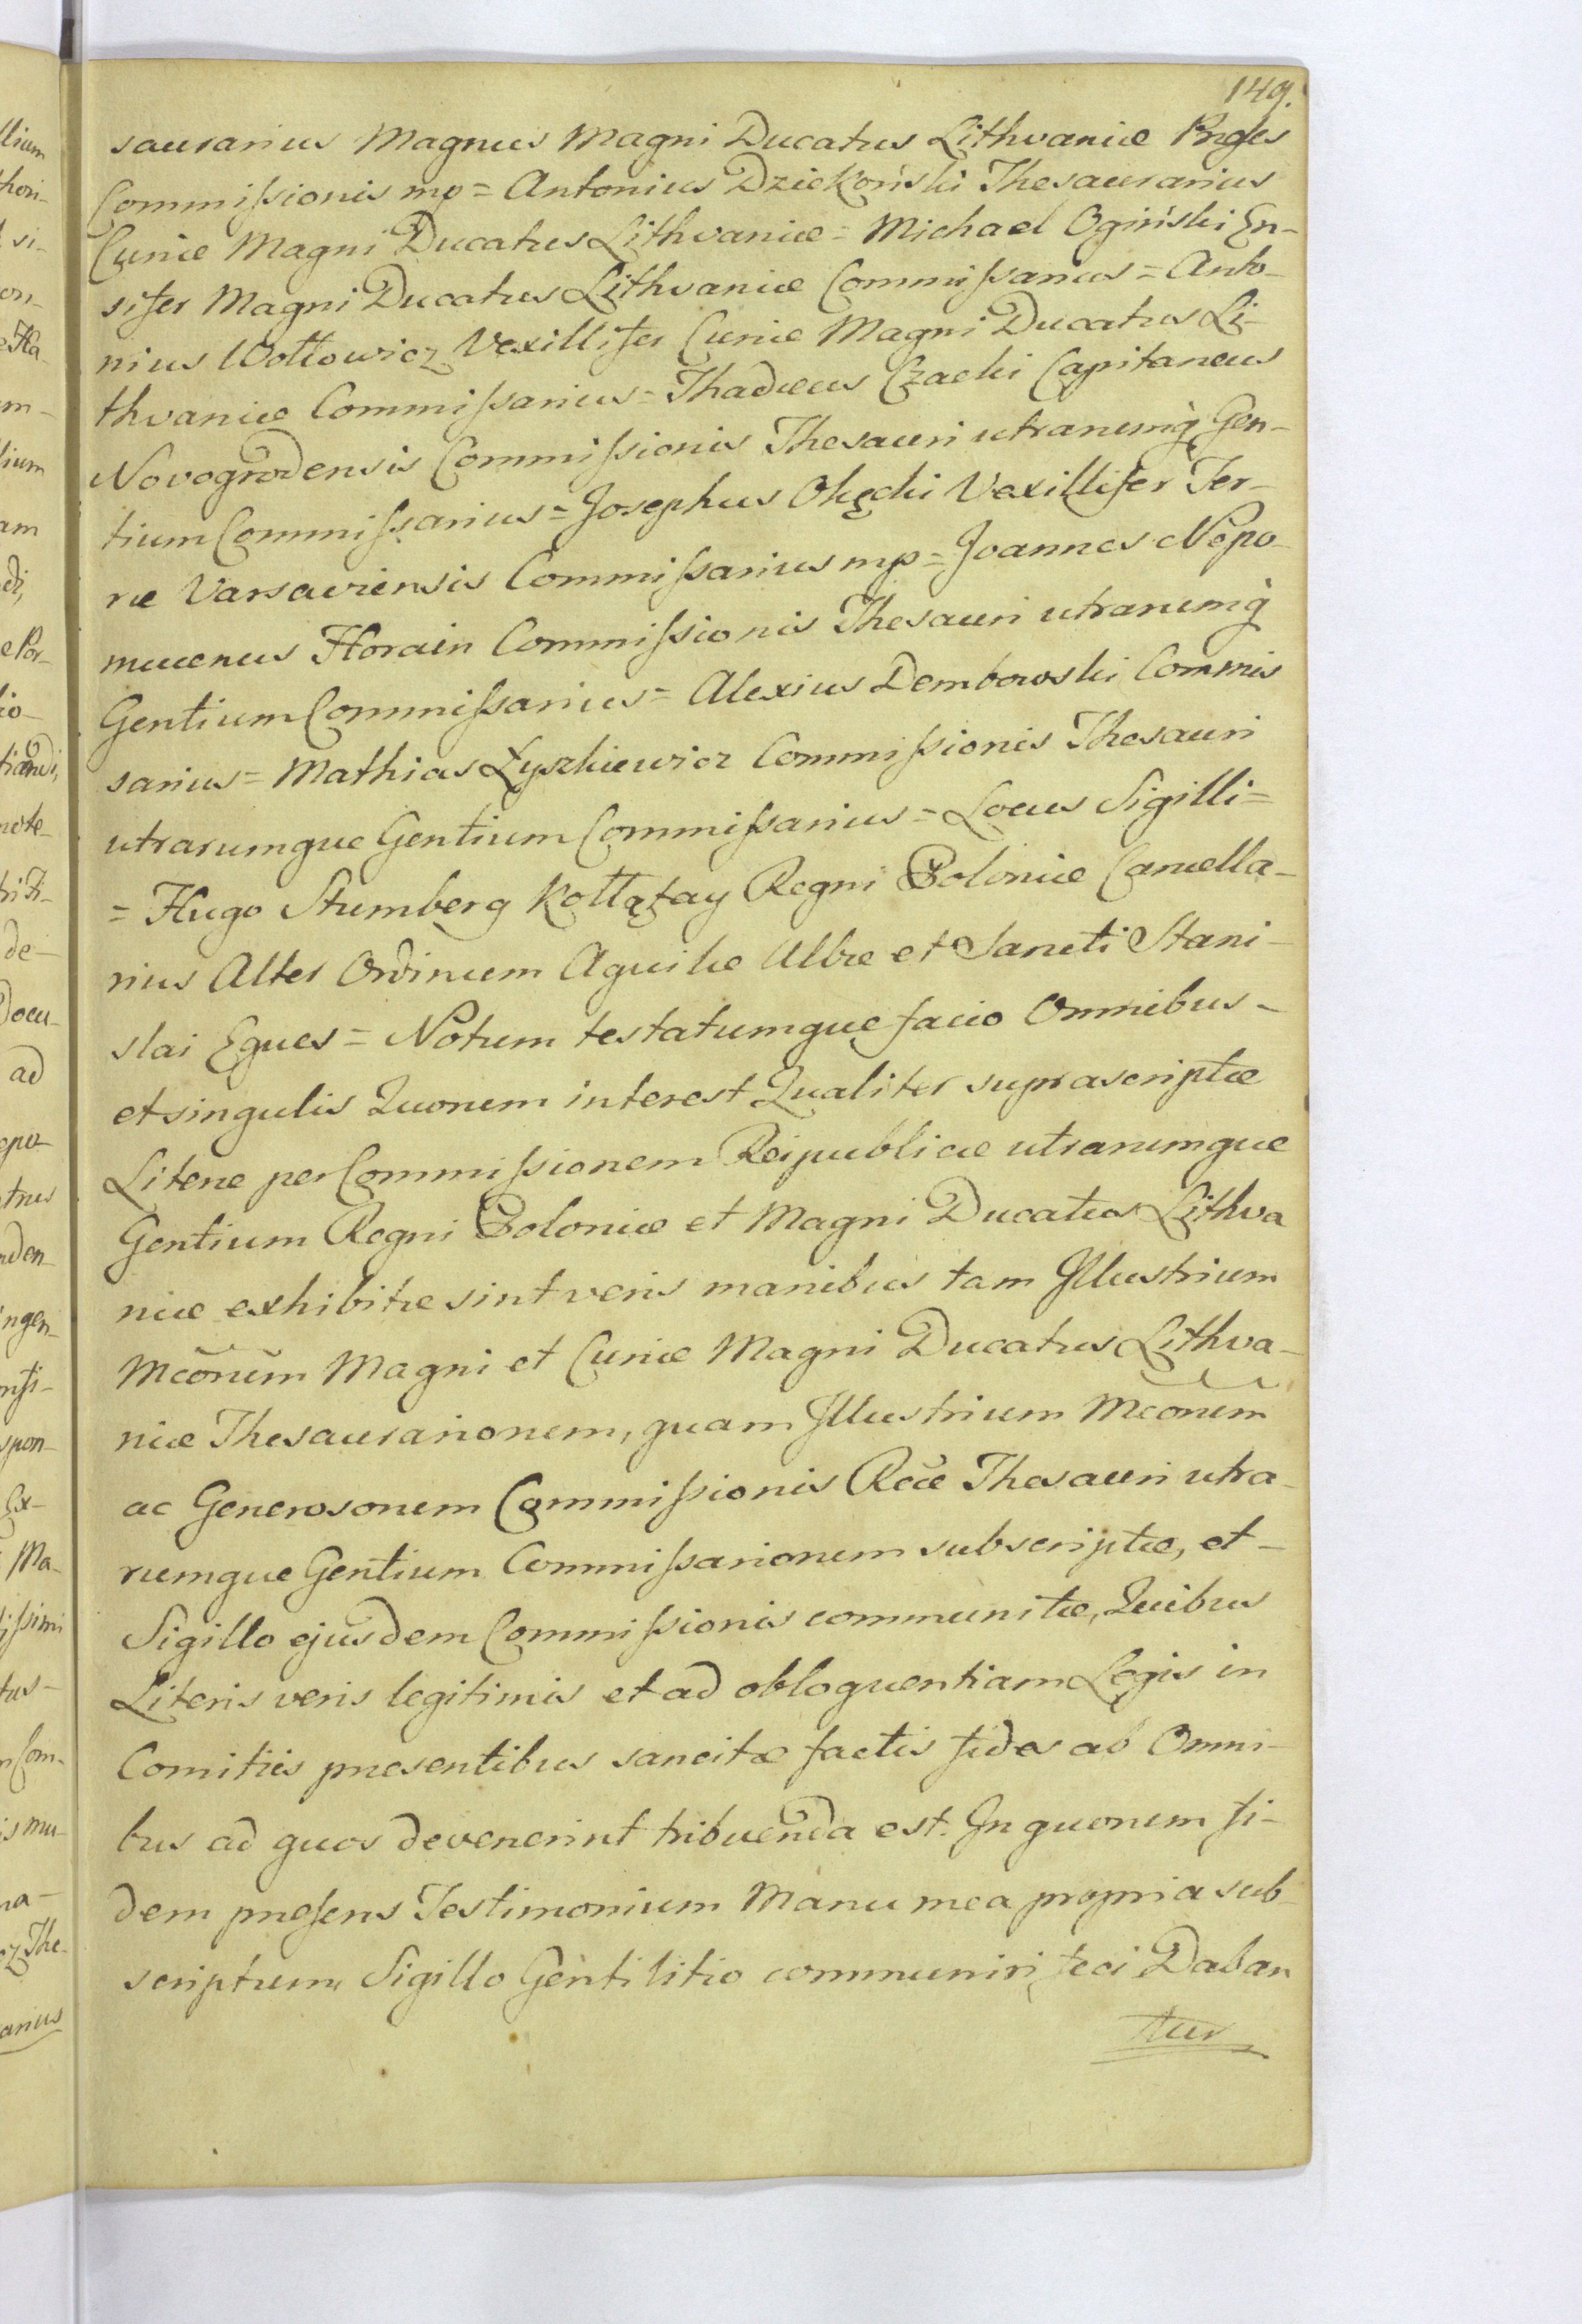 149.
saurarius Magnus Magni Ducatus Lithvaniæ Præses
Commissionis mp = Antonius Dziekoński Thesaurarius
Curiæ Magni Ducatus Lithvaniæ = Michael Ogiński En-
sifer Magni Ducatus Lithvaniæ Commissarius = Anto-
nius Wołłowicz Vexillifer Curiæ Magni Ducatus Li-
thvaniæ Commissarius = Thadæus Czacki Capitaneus
Novogrodensis Commissionis Thesauri utrarumq̀ Gen-
tium Commissarius = Josephus Okęcki Vexillifer Ter-
ræ Varsaviensis Commissarius mp = Joannes Nepo-
mucenus Horain Commissionis Thesauri utrarumq̀
Gentium Commissarius = Alexius Dembowski Commis
sarius = Mathias Łyszkiewicz Commissionis Thesauri
utrarumque Gentium Commissarius = Locus Sigilli =
= Hugo Stumberg Kołłątay Regni Poloniæ Cancella-
rius Alter Ordinum Aquilæ Albæ et Sancti Stani-
slai Eques = Notum testatumque facio Omnibus -
et singulis Quorum interest Qualiter suprascriptæ
Literæ per Commissionem Reipublicæ utrarumque
Gentium Regni Poloniæ et Magni Ducatus Lithva
niæ exhibitæ sint veris manibus tam Illustrium
Mcõrum Magni et Curiæ Magni Ducatus Lithva-
niæ Thesaurariorum, quam Illustrium Mcõrum
ac Generosorum Commissionis Rcæ Thesauri utra-
rumque Gentium Commissariorum subscriptæ, et -
Sigillo ejusdem Commissionis communitæ, Quibus
Literis veris legitimis et ad obloquentiam Legis in
Comitiis præsentibus sancitæ factis fides ab Omni-
bus ad quos devenerint tribuenda est. In quorum fi-
dem præsens Testimonium Manu mea propria sub
scriptum Sigillo Gentilitio communiri feci Daban
tur